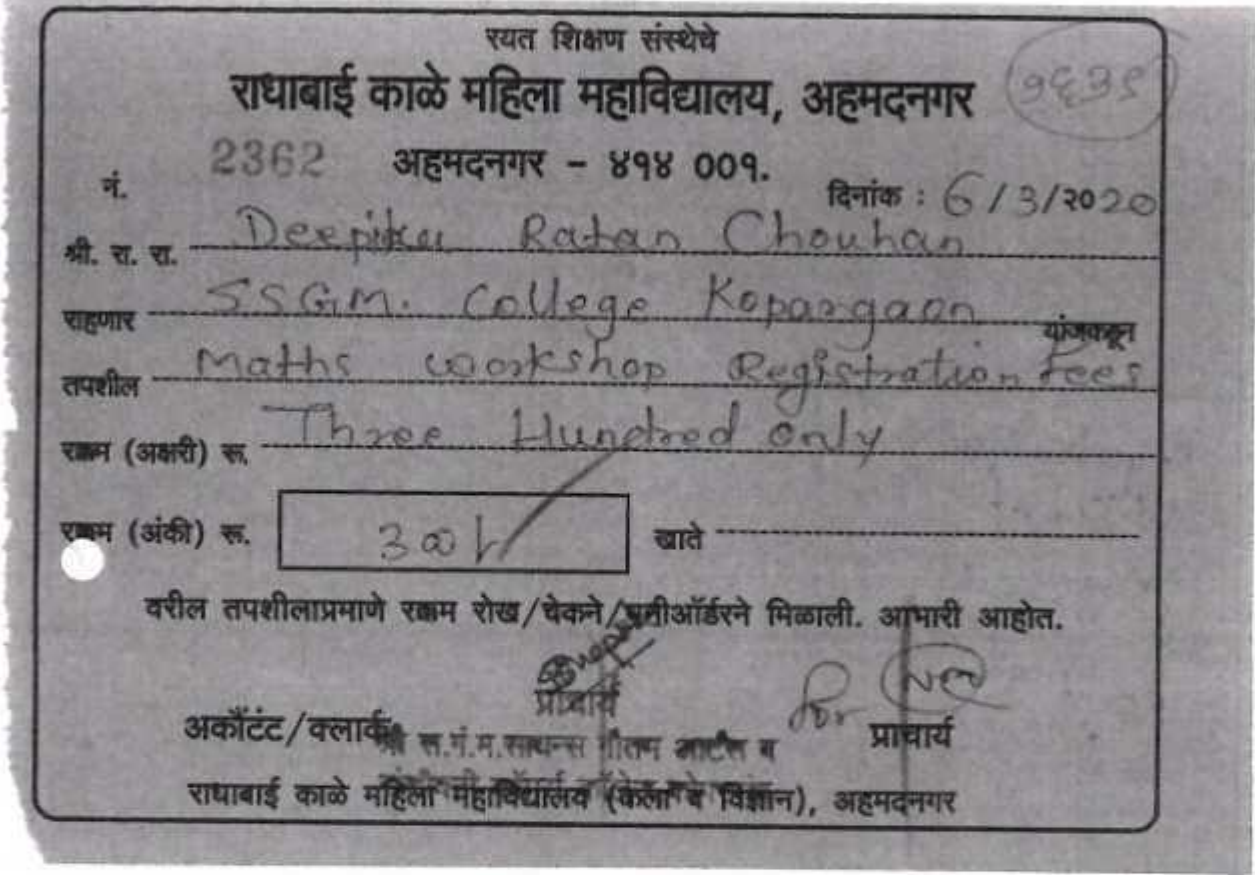 रयत शिक्षण संस्थेचे
राधाबाई काळे महिला महाविद्यालय, अहमदनगर
१६३९
2362 अहमदनगर - ४१४ ००१.
नं. दिनांक : 6/3/२०20
श्री. रा. रा. Deepika Ratan Chouhan
राहणार SSGM. College Kopargaon यांजकडून
तपशील Maths workshop Registration Fees
रक्कम (अक्षरी) रू. Three Hundred Only
रक्कम (अंकी) रू. 300/- खाते
वरील तपशीलाप्रमाणे रक्कम रोख/चेकने/मनीऑर्डरने मिळाली. आभारी आहोत.
प्राचार्य
for
अकौंटंट/क्लार्क प्राचार्य
स.गं.म.सायन्स गौतम आर्टस व
राधाबाई काळे महिला महाविद्यालय (कला व विज्ञान), अहमदनगर